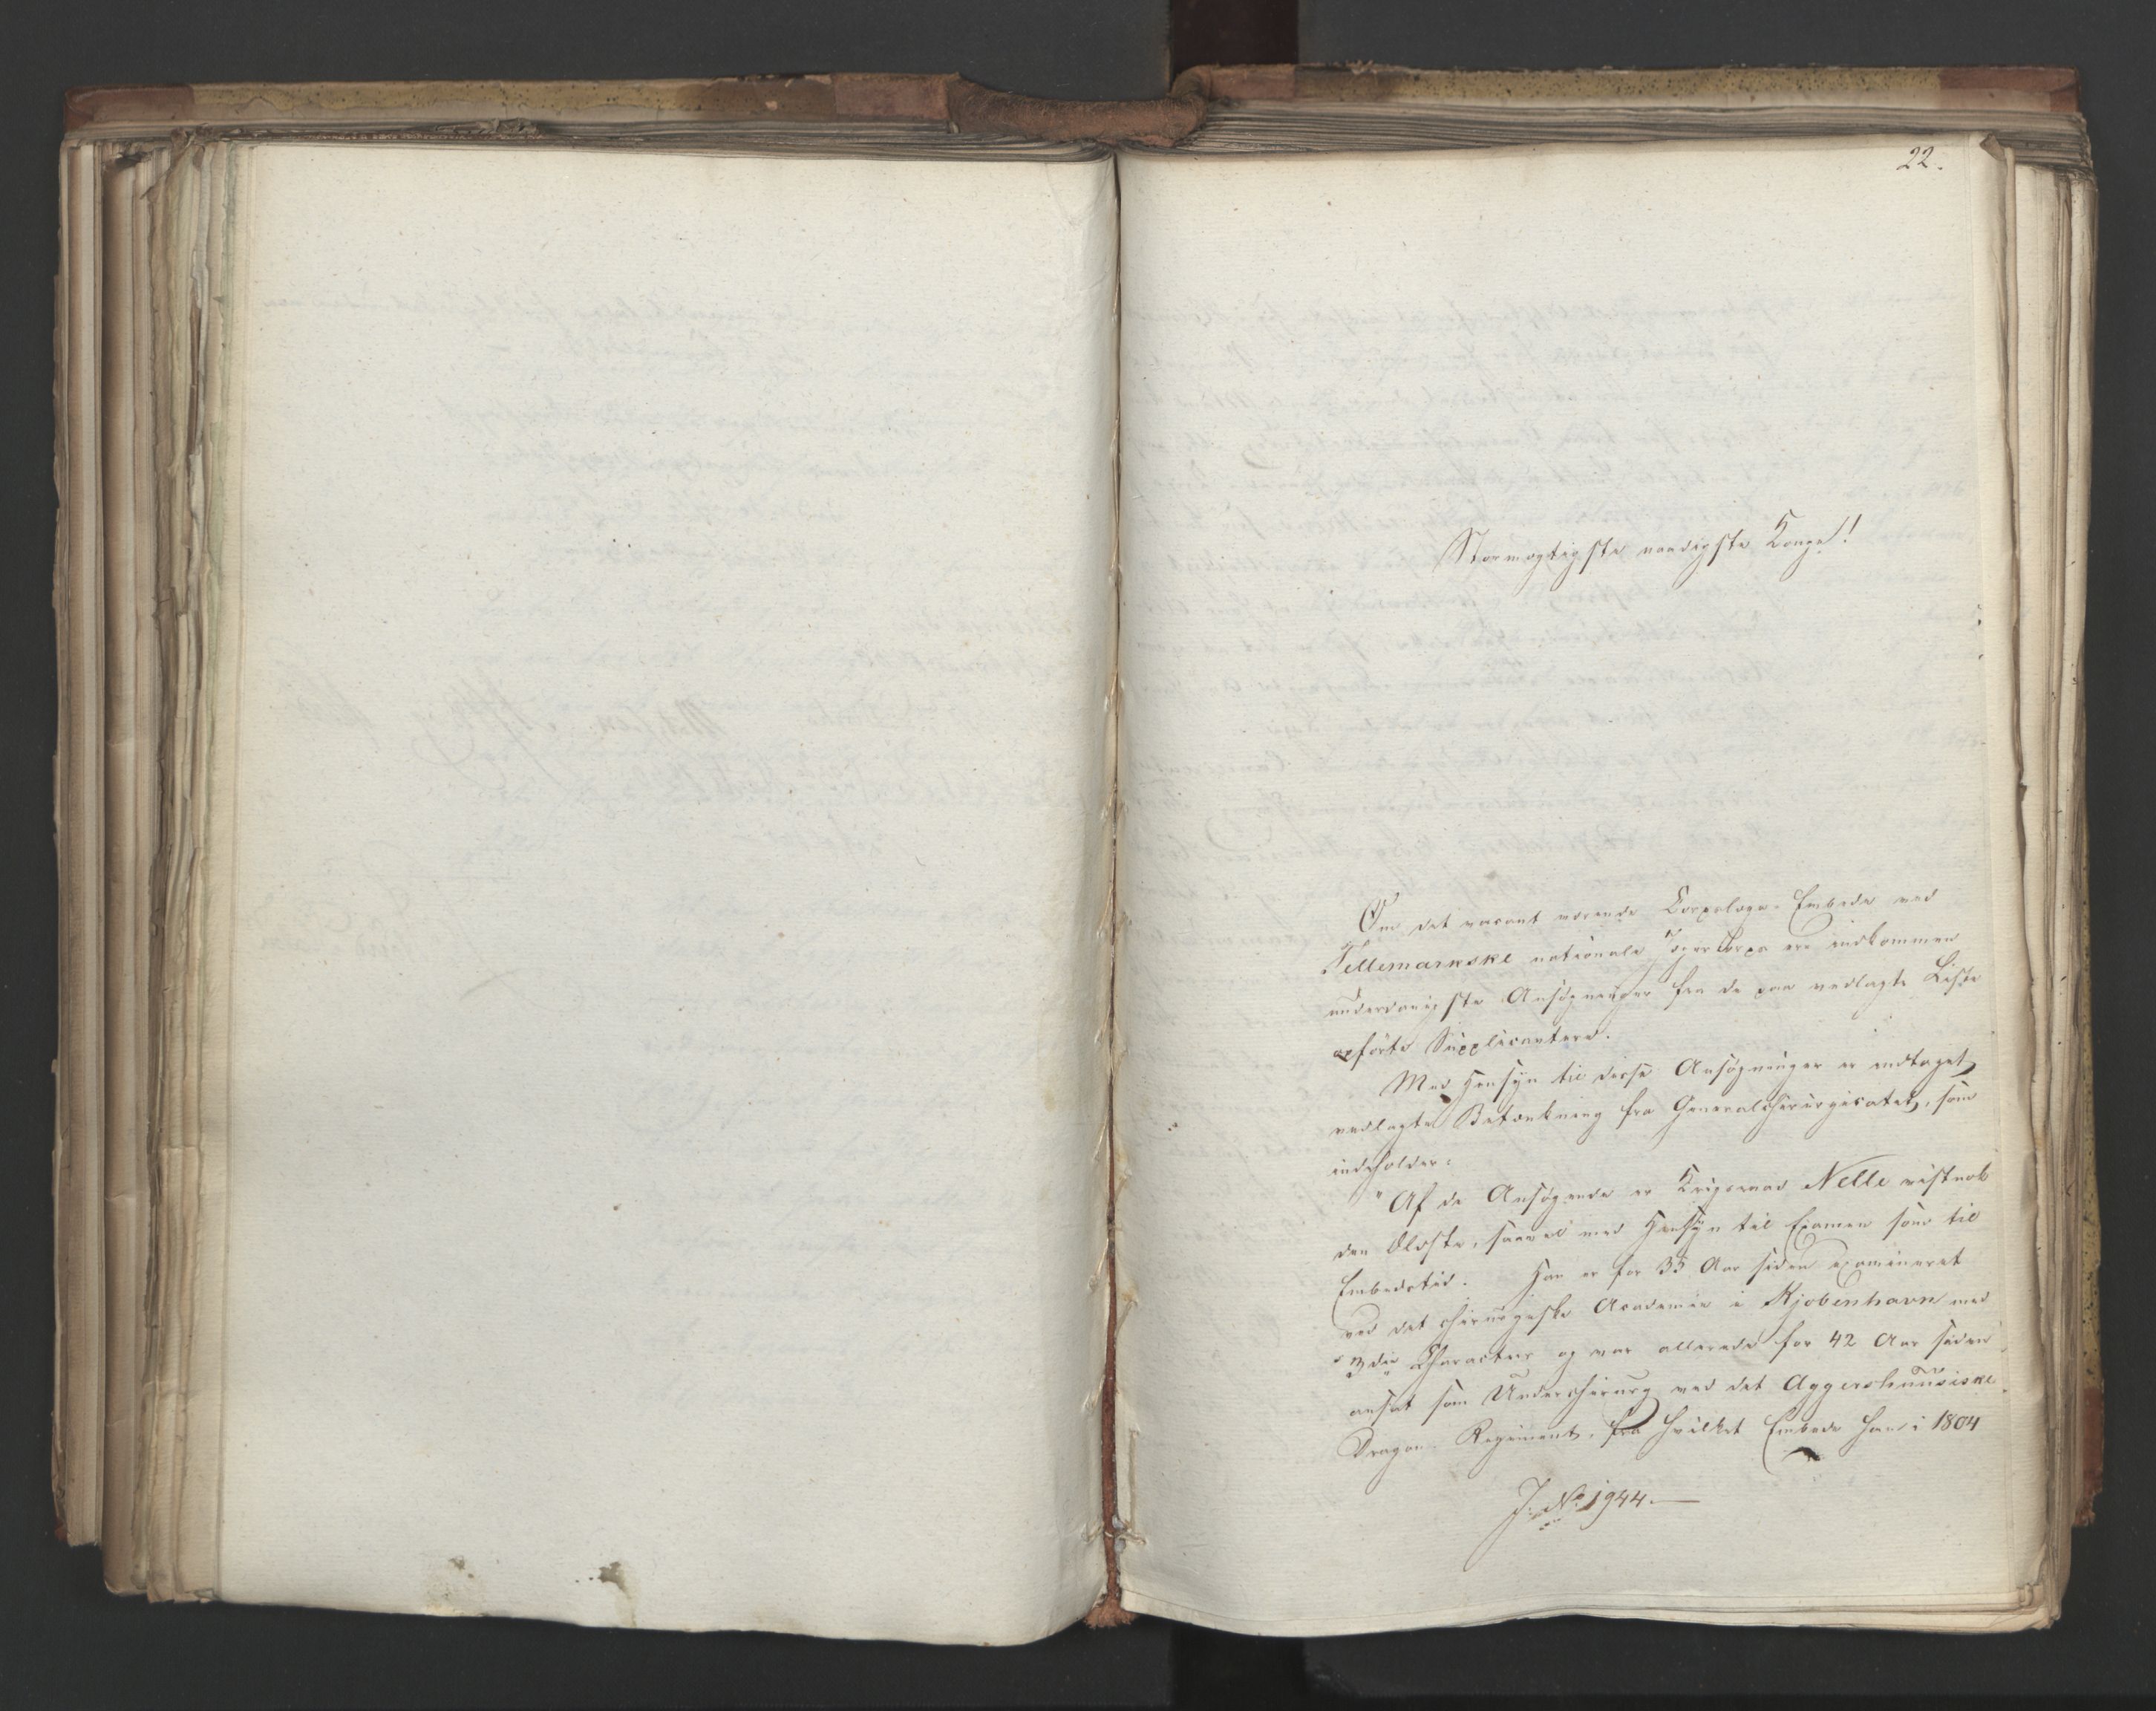 22.
Stormægtigste naadigste Konge!
Om det vacant værende Corpslæge-Embede ved
Tellemarkske nationale Jægercorps ere indkommen
underdanigste Ansøgninger fra de paa vedlagte Liste
opførte Supplicantere.
Med Hensyn til disse Ansøgninger er indtaget
vedlagte Betænkning fra Generalchirurgicatet, som
indeholder:
"Af de Ansøgende er Krigsraad Nelle vistnok
den Ældste, saavel med Hensyn til Examen som til
Embedstid. Han er for 33 Aar siden examineret
ved det chirurgiske Academie i Kjøbenhavn med
"3die Characteer og var allerede for 42 Aar siden
ansat som Underchirurg ved det Aggershuusiske
Dragon-Regiment, fra hvilket Embede han i 1804
J. No 1944.—